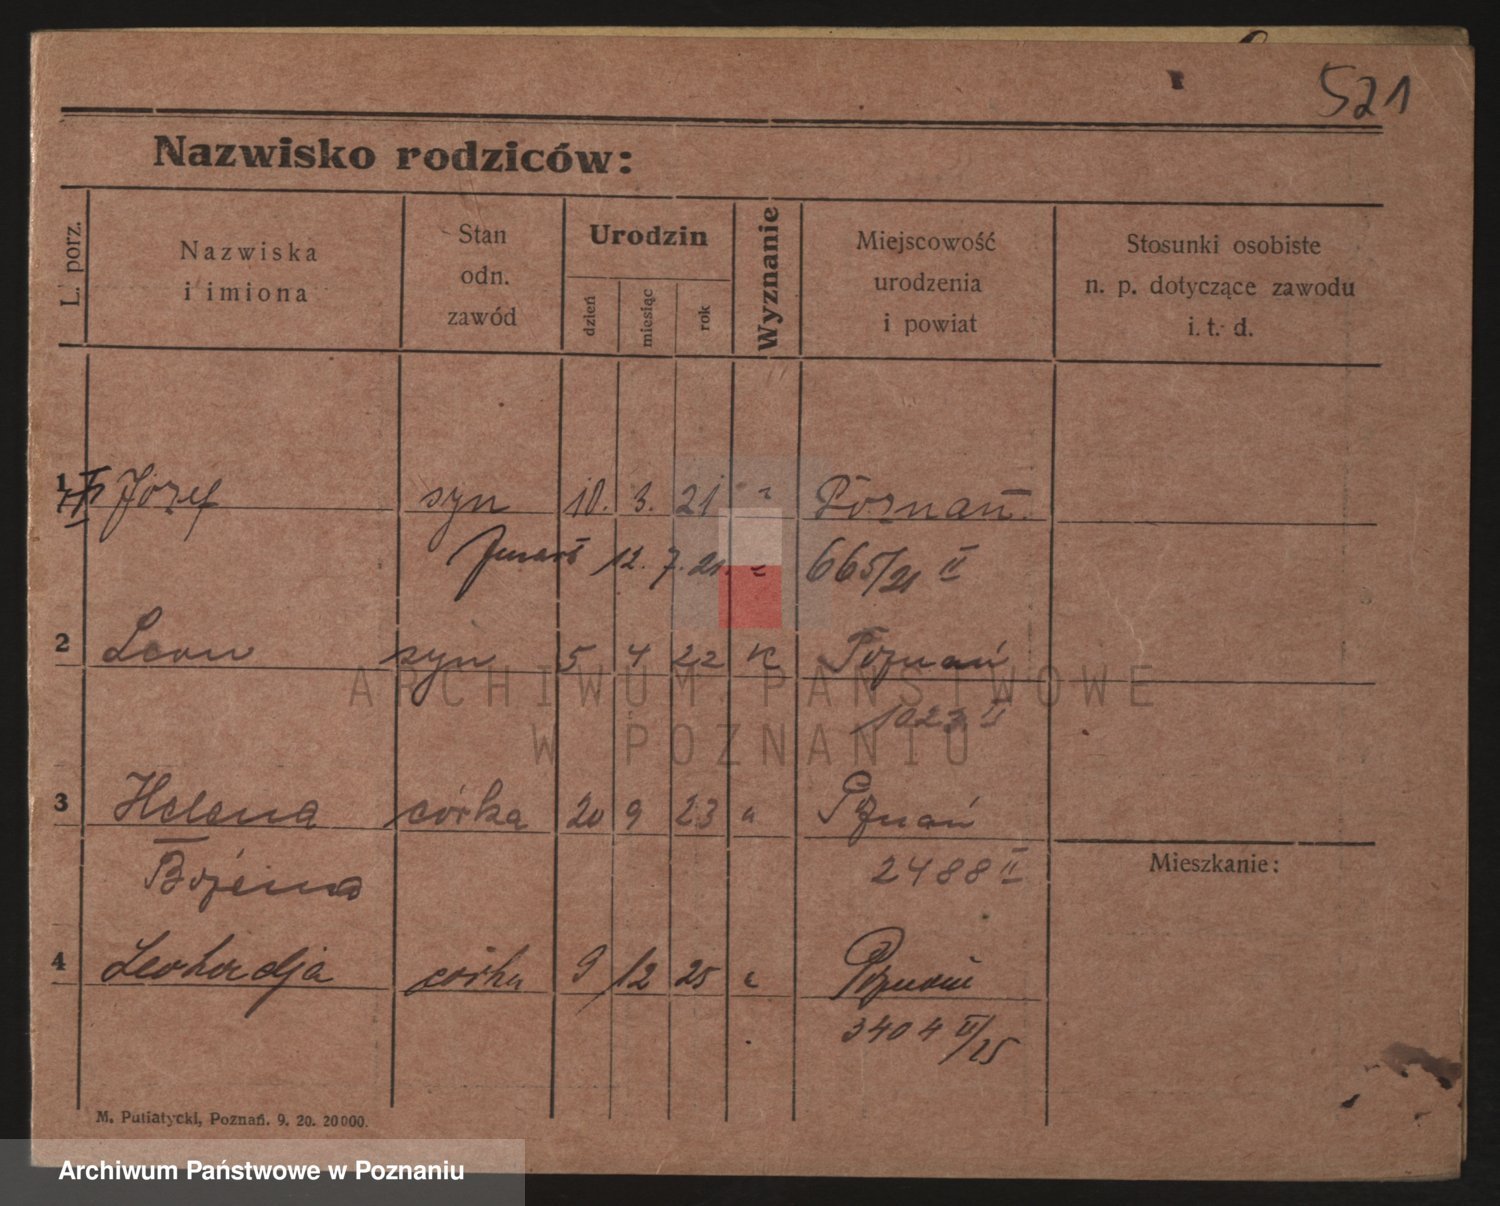 521
Nazwisko rodziców:
L. porz.
Nazwiska
i imiona
Stan
odn.
zawód
Urodzin
dzień
miesiąc
rok
Wyznanie
Miejscowość
urodzenia
i powiat
Stosunki osobiste
n. p. dotyczące zawodu
i. t. d.
1 Józef syn 10. 3. 21 Poznań.
12. 7. 21. 665/21 II
2 Leon syn 5 4 22 K Poznań
1023 II
3 Helena córka 20 9 23 Poznań
Bożena 2488 II
Mieszkanie:
4 Leokadja córka 9 12 25 Poznań
3404 II/25
M. Putiatycki, Poznań. 9. 20. 20000.
ARCHIWUM PAŃSTWOWE
W POZNANIU
Archiwum Państwowe w Poznaniu